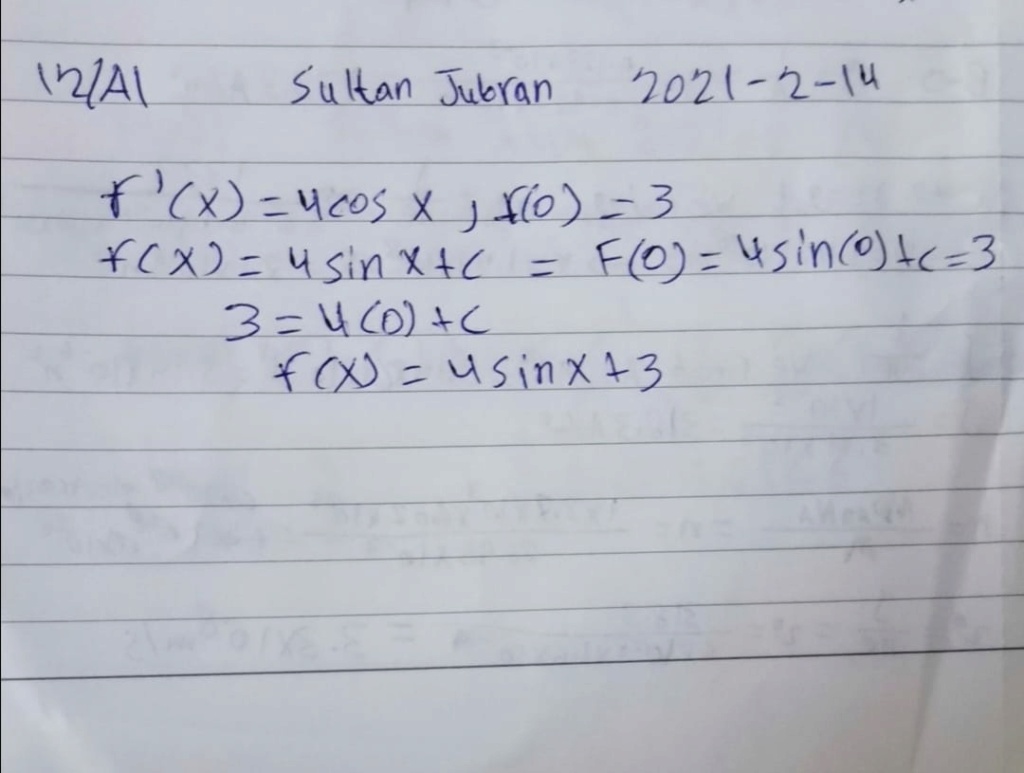 12/A1 Sultan Jubran 2021-2-14
f'(x) = 4cos x , f(0) = 3
f(x) = 4 sin x + c = F(0) = 4sin(0)+c=3
3 = 4(0) + c
f(x) = 4sinx + 3